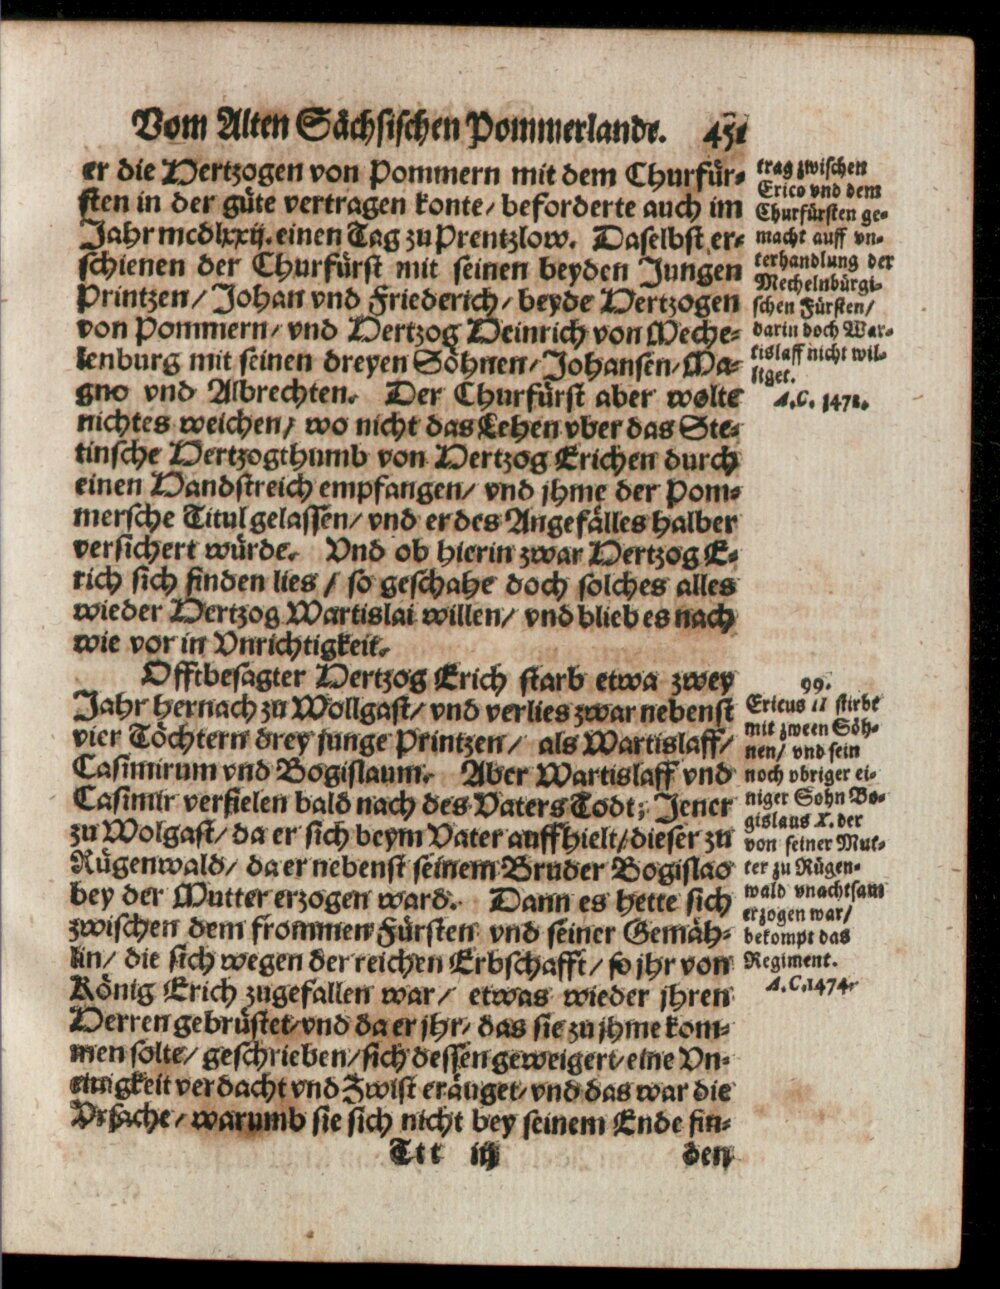 Vom Alten Sächsischen Pommerlande. 451
er die Hertzogen von Pommern mit dem Churfür-
sten in der güte vertragen konte/ beforderte auch im
Jahr mcdlxxij. einen Tag zu Prentzlow. Daselbst er-
schienen der Churfürst mit seinen beyden Jungen
Printzen/ Johan vnd Friederich/ beyde Hertzogen
von Pommern/ vnd Hertzog Heinrich von Meche-
lenburg mit seinen dreyen Söhnen/ Johansen/ Ma-
gno vnd Albrechten. Der Churfürst aber wolte
nichtes weichen/ wo nicht das Lehen vber das Ste-
tinsche Hertzogthumb von Hertzog Erichen durch
einen Handstreich empfangen/ vnd jhme der Pom-
mersche Titul gelassen/ vnd er des Angefälles halber
versichert würde. Vnd ob hierin zwar Hertzog E-
rich sich finden lies / so geschahe doch solches alles
wieder Hertzog Wartislai willen/ vnd blieb es nach
wie vor in Vnrichtigkeit.
Offtbesagter Hertzog Erich starb etwa zwey
Jahr hernach zu Wollgast/ vnd verlies zwar nebenst
vier Töchtern drey junge Printzen/ als Wartislaff/
Casimirum vnd Bogislaum. Aber Wartislaff vnd
Casimir verfielen bald nach des Vaters Todt; Jener
zu Wolgast/ da er sich beym Vater auffhielt/ dieser zu
Rügenwald/ da er nebenst seinem Bruder Bogislao
bey der Mutter erzogen ward. Dann es hette sich
zwischen dem frommen Fürsten vnd seiner Gemäh-
lin/ die sich wegen der reichen Erbschafft/ so jhr von
König Erich zugefallen war/ etwas wieder jhren
Herren gebrüstet/ vnd da er jhr/ das sie zu jhme kom-
men solte/ geschrieben/ sich dessen geweigert/ eine Vn-
einigkeit verdacht vnd Zwist eräuget/ vnd das war die
Vrsache/ warumb sie sich nicht bey seinem Ende fin-
Ttt iij den
trag zwischen
Erico vnd dem
Churfürsten ge-
macht auff vn-
terhandlung der
Mechelnbürgi-
schen Fürsten/
darin doch War-
tislaff nicht wil-
liget.
A.C. 1472.
99.
Ericus II stirbt
mit zween Söh-
nen/ vnd sein
noch vbriger ei-
niger Sohn Bo-
gislaus X. der
von seiner Mut-
ter zu Rügen-
wald vnachtsam
erzogen war/
bekompt das
Regiment.
A.C. 1474.